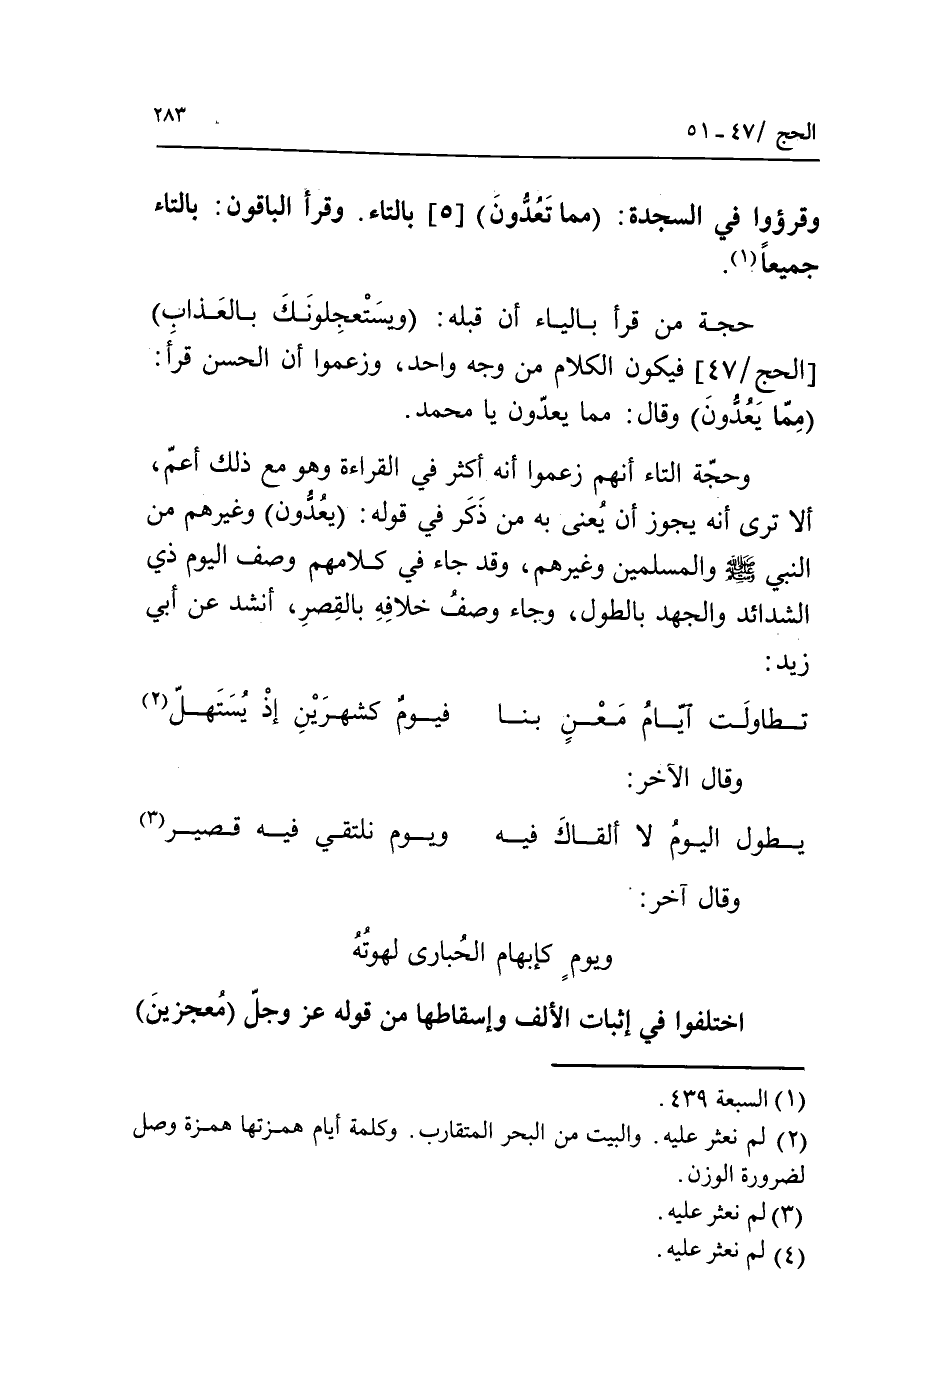 الحج /٤٧ ـ ٥١
٢٨٣
وقرؤوا في السجدة: (مما تَعُدُّونَ) [٥] بالتاء. وقرأ الباقون: بالتاء
جميعاً(١).
حجـة من قرأ بـاليـاء أن قبله: (ويسَتْعجِلونَـكَ بـالعَـذابِ)
[الحج/٤٧] فيكون الكلام من وجه واحد، وزعموا أن الحسن قرأ:
(مِمّا يَعُدُّونَ) وقال: مما يعدّون يا محمد.
وحجّة التاء أنهم زعموا أنه أكثر في القراءة وهو مع ذلك أعمّ،
ألا ترى أنه يجوز أن يُعنى به من ذَكَر في قوله: (يعُدُّون) وغيرهم من
النبي ﷺ والمسلمين وغيرهم، وقد جاء في كـلامهم وصف اليوم ذي
الشدائد والجهد بالطول، وجاء وصفُ خلافِهِ بالقِصرِ، أنشد عن أبي
زيد:
تـطاولَـت آيّـامُ مَـعْـنٍ بـنـا فيـومٌ كشهـرَيْنِ إذْ يُسْتَهـلّ(٢)
وقال الآخر:
يـطول اليـومُ لا ألقـاكَ فيـه ويـوم نلتقي فيـه قـصيـر(٣)
وقال آخر:
ويومٍ كإبهام الحُبارى لهوتُهُ
اختلفوا في إثبات الألف وإسقاطها من قوله عز وجلّ (مُعجزينَ)
(١) السبعة ٤٣٩.
(٢) لم نعثر عليه. والبيت من البحر المتقارب. وكلمة أيام همـزتها همـزة وصل
لضرورة الوزن.
(٣) لم نعثر عليه.
(٤) لم نعثر عليه.